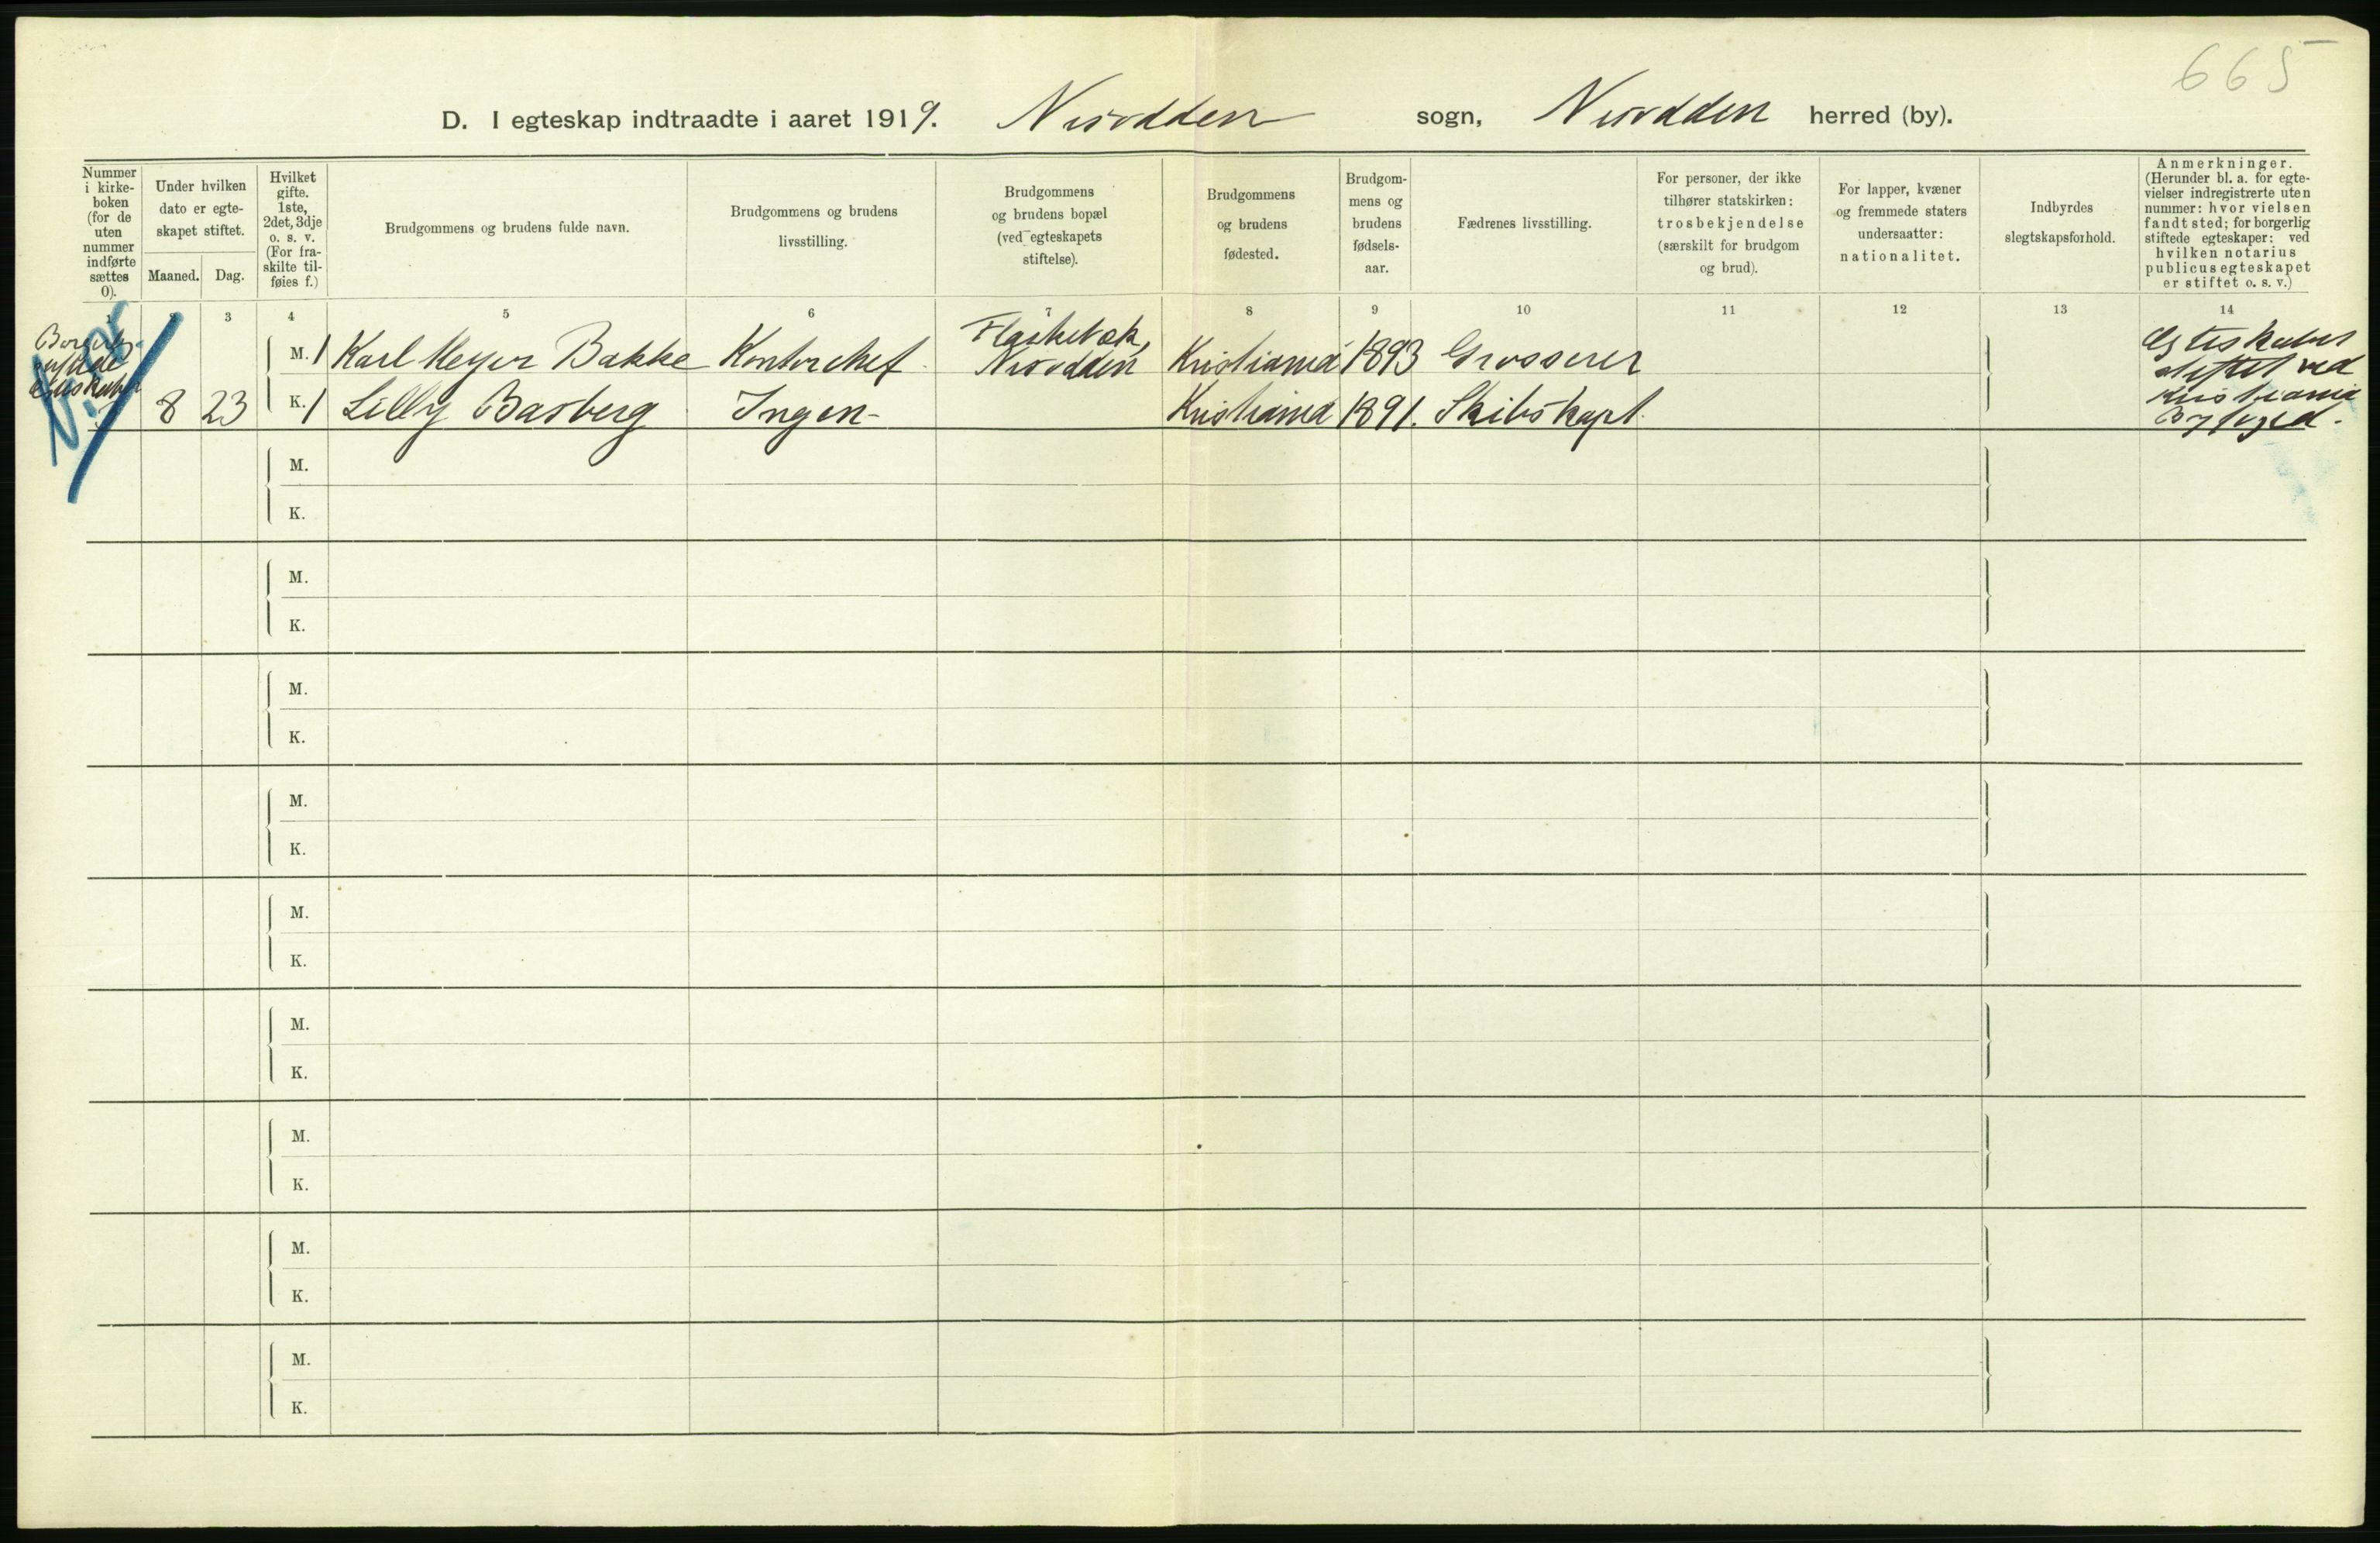 665
D. I egteskap indtraadte i aaret 1919. Nesodden sogn, Nesodden herred (by).
Nummer
i kirke-
boken
(for de
uten
nummer
indførte
sættes
0).
Under hvilken
dato er egte-
skapet stiftet.
Maaned. Dag.
Hvilket
gifte.
1ste,
2det, 3dje
o. s. v.
(For fra-
skilte til-
føies f.)
Brudgommens og brudens fulde navn.
Brudgommens og brudens
livsstilling.
Brudgommens
og brudens bopæl
(ved egteskapets
stiftelse).
Brudgommens
og brudens
fødested.
Brudgom-
mens og
brudens
fødsels-
aar.
Fædrenes livsstilling.
For personer, der ikke
tilhører statskirken:
trosbekjendelse
(særskilt for brudgom
og brud).
For lapper, kvæner
og fremmede staters
undersaatter:
nationalitet.
Indbyrdes
slegtskapsforhold.
Anmerkninger.
(Herunder bl. a. for egte-
vielser indregistrerte uten
nummer: hvor vielsen
fandt sted; for borgerlig
stiftede egteskaper: ved
hvilken notarius
publicus egteskapet
er stiftet o. s. v.)
1 2 3 4 5 6 7 8 9 10 11 12 13 14
M. 1 Karl Meyer Bakke Kontorchef Flaskebæk, Nesodden Kristiania 1893 Grosserer
8 23 K. 1 Lilly Basberg Ingen- Kristiania 1891. Skibskapt.
Egteskabet
stiftet ved
Kristiania
Byfoged.
M.
K.
M.
K.
M.
K.
M.
K.
M.
K.
M.
K.
M.
K.
M.
K.
M.
K.